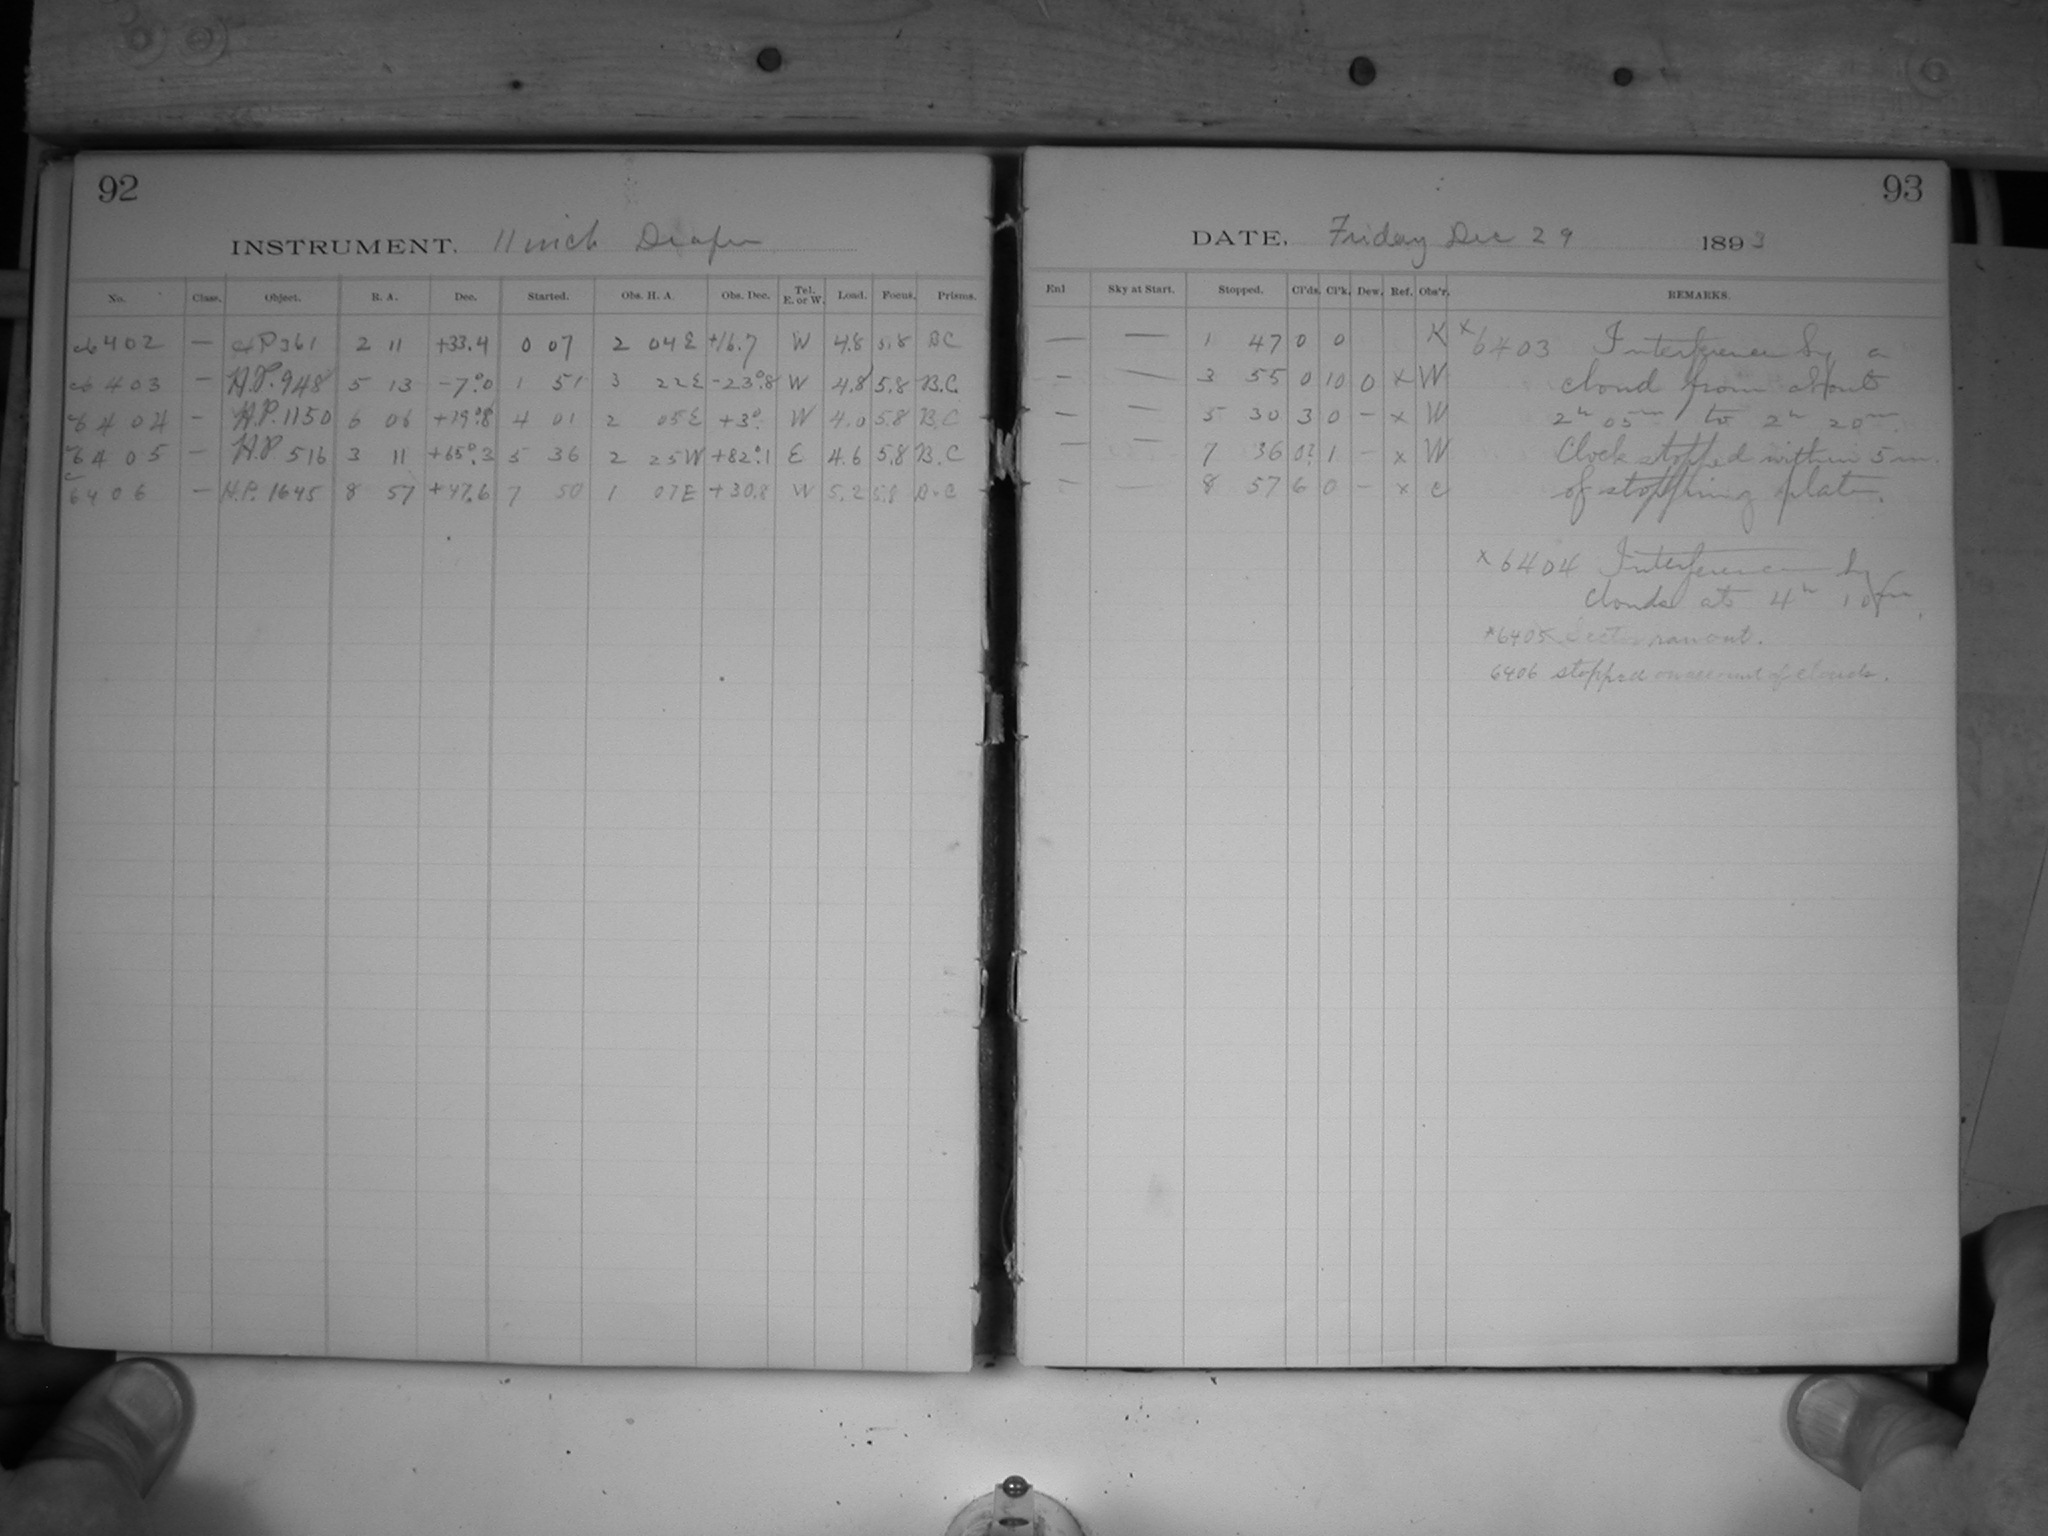 92
INSTRUMENT. 11 inch Draper
No. Class. Object. R. A. Dec. Started. Obs. H. A. Obs. Dec. Tel. E. or W. Load. Focus. Prisms.
6402 — H.P 361 2 11 +33.4 0 07 2 04 E +16.7 W 4.8 5.8 B C
6403 — H.P. 948 5 13 -7°.0 1 51 3 22 E -23°.8 W 4.8 5.8 B.C.
6404 — H.P. 1150 6 06 +19°.8 4 01 2 05 E +3° W 4.0 5.8 B.C
6405 — H.P 516 3 11 +65°.3 5 36 2 25 W +82°.1 E 4.6 5.8 B.C
6406 — H.P. 1645 8 57 +47.6 7 50 1 07 E +30.8 W 5.2 5.8 B.C
93
DATE, Friday Dec 29 1893
Enl Sky at Start. Stopped. Cl'ds. Cl'k. Dew. Ref. Obs'r. REMARKS.
— — 1 47 0 0 K
— — 3 55 0 10 0 x W
— — 5 30 3 0 - x W
— — 7 36 0? 1 - x W
— — 8 57 6 0 - x c
x6403 Interference by a
cloud from about
2h 05m to 2h 20m.
Clock stopped within 5 m.
of stopping plate.
x 6404 Interference by
clouds at 4h 10m.
x6405 ran out.
6406 stopped on account of clouds.